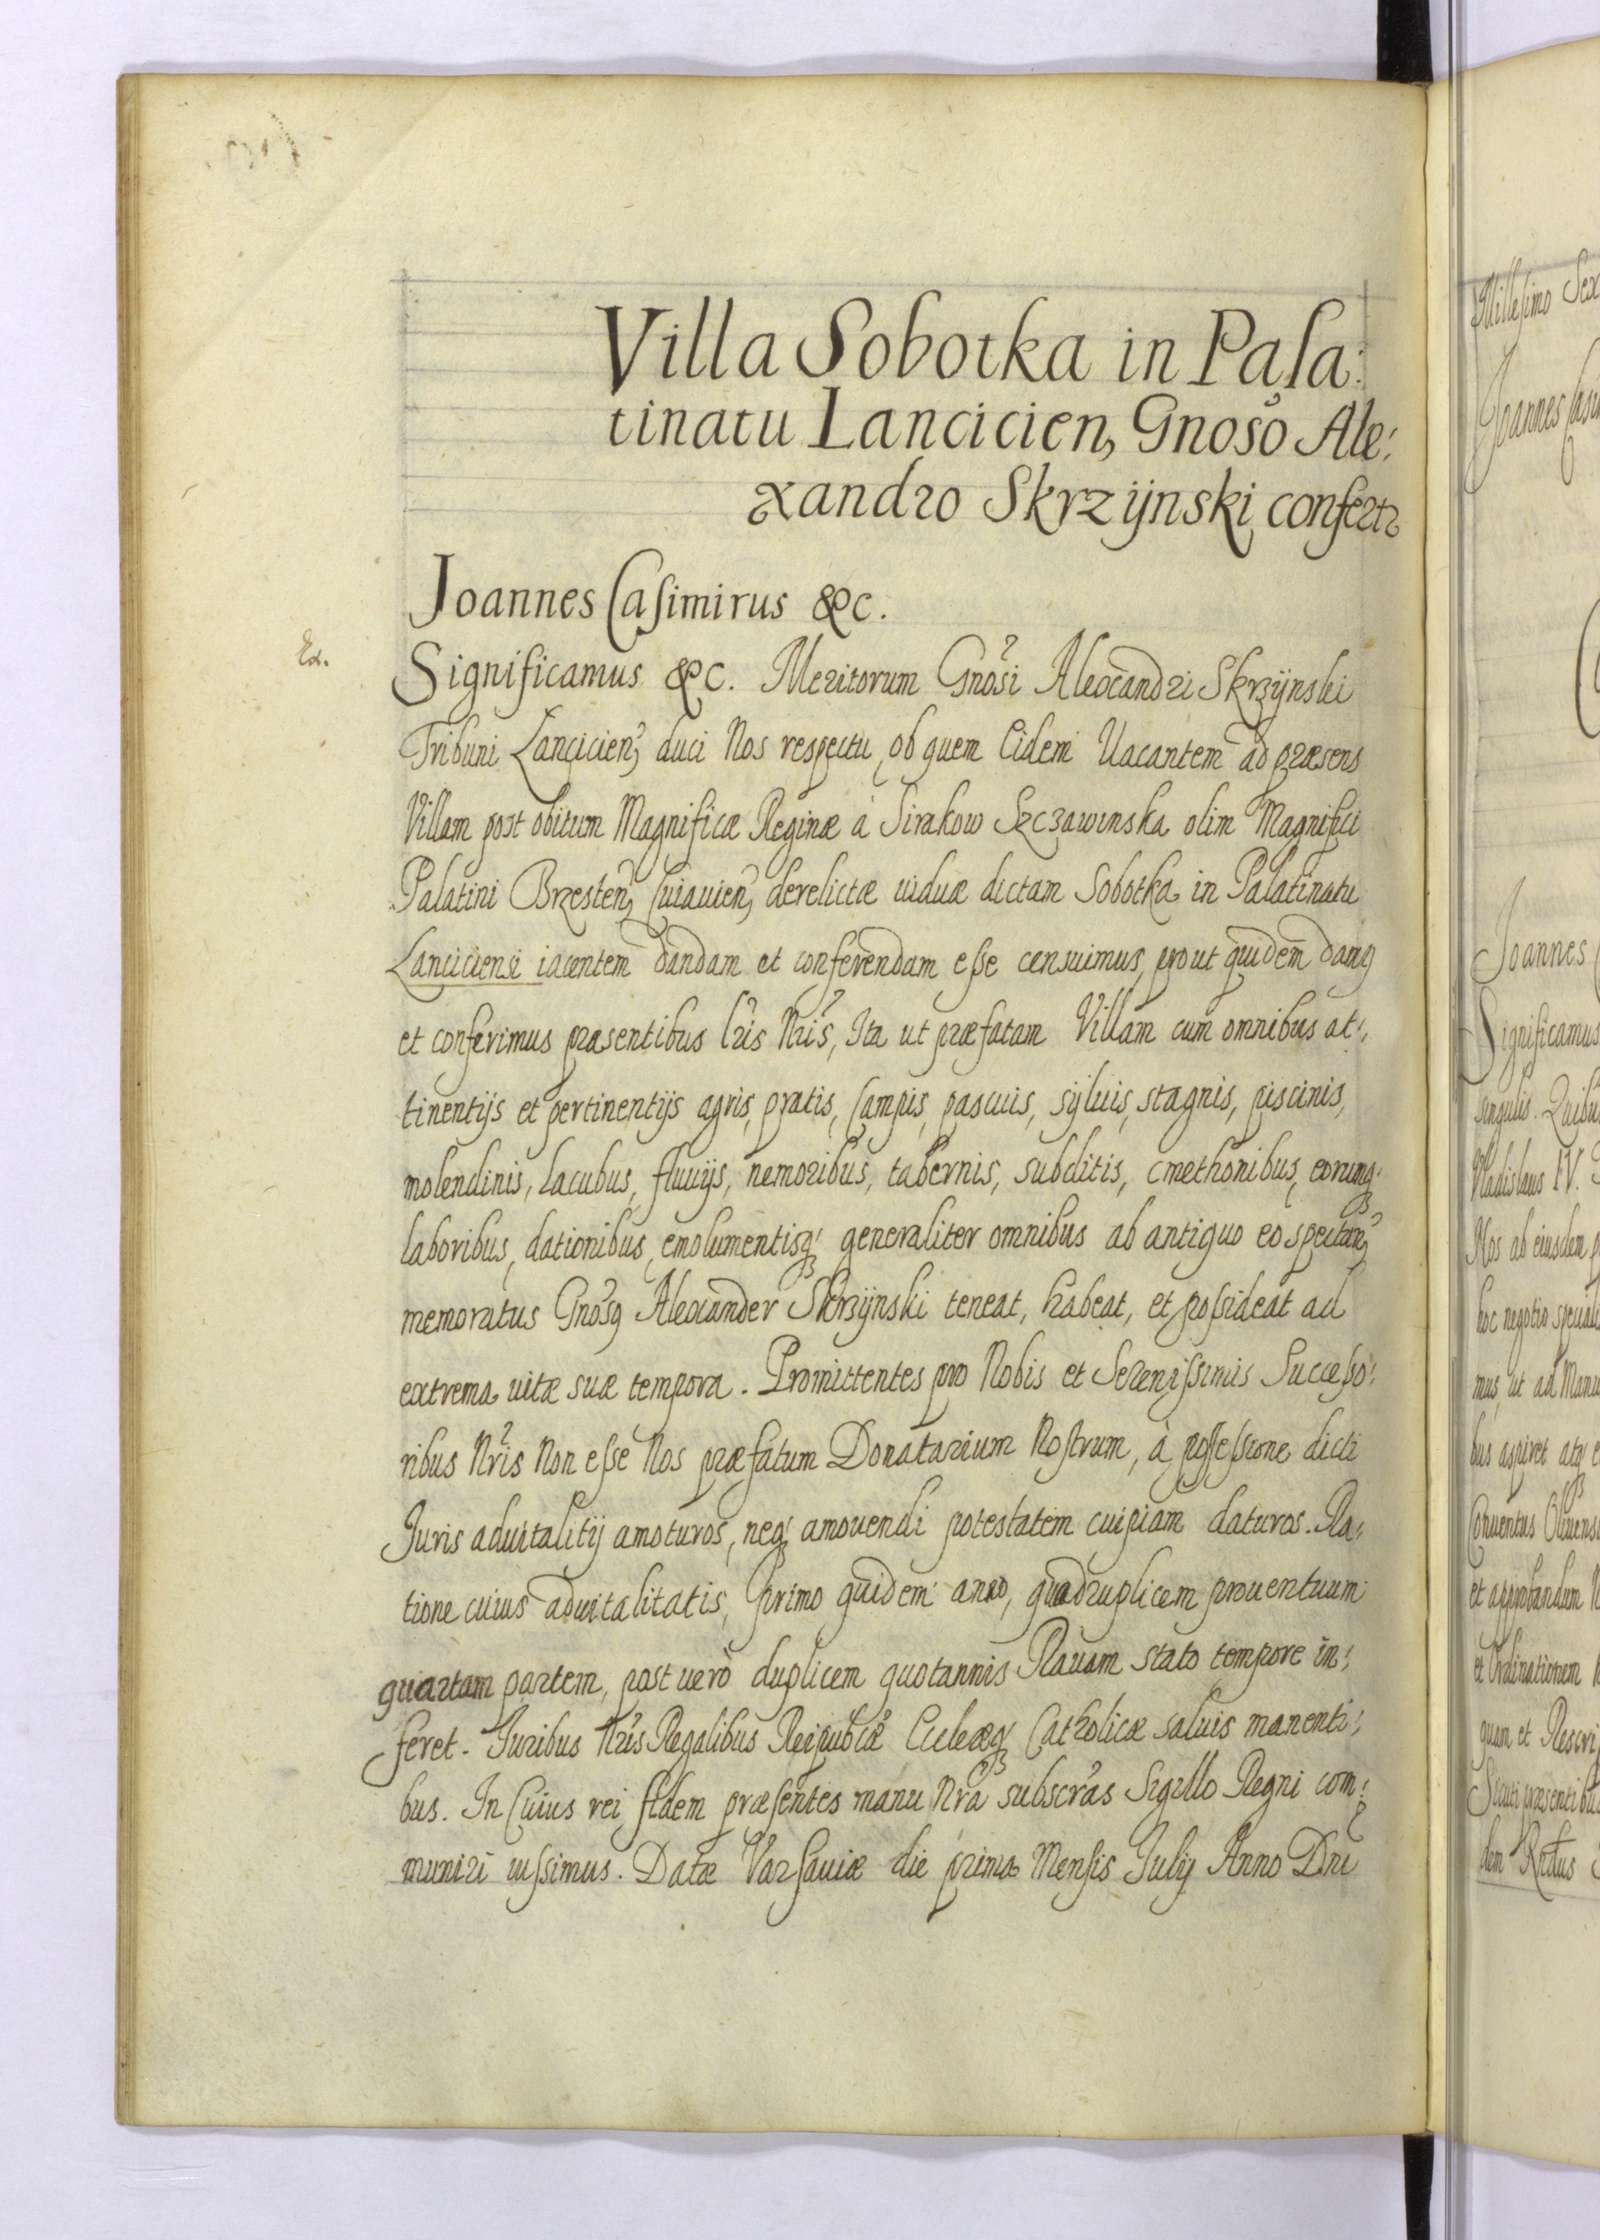 Villa Sobotka in Pala:
tinatu Lancicien, Gnoso Ale:
xandro Skrzÿnski confertr
Joannes Casimirus &c.
Ex.
Significamus &c. Meritorum Gnosi Alexandri Skrzÿnski
Tribuni Lancicien, duci Nos respectu, ob quem Eidem Vacantem ad præsens
Villam post obitum Magnificæ Reginæ à Sirakow Szczawinska olim Magnifici
Palatini Brzesten, Cuiauien, derelictæ uiduæ dictam Sobotka in Palatinatu
Lanciciensi iacentem dandam et conferendam esse censuimus, prout quidem damq
et conferimus præsentibus lris Nris, Ita ut præfatam Villam cum omnibus at:
tinentijs et pertinentijs agris, pratis, Campis, pascuis, sÿluis, stagnis, piscinis,
molendinis, lacubus, fluuijs, nemoribus, tabernis, subditis, cmethonibus, eorumq;
laboribus, dationibus, emolumentisq; generaliter omnibus ab antiquo eo spectan,
memoratus Gnosq Alexander Skrzÿnski teneat, habeat, et possideat ad
extrema uitæ suæ tempora. Promittentes pro Nobis et Serenissimis Successo:
ribus Nris Non esse Nos præfatum Donatarium Nostrum, à possessione dicti
Juris aduitalitij amoturos, neq; amouendi potestatem cuipiam daturos. Ra:
tione cuius aduitalitatis, Primo quidem anno, quadruplicem prouentuum
quartam partem, post uerò duplicem quotannis Rauam stato tempore in:
feret. Juribus Nris Regalibus Reipublcæ Eccleæq; Catholicæ saluis manenti:
bus. In Cuius rei fidem præsentes manu Nra subscras Sigillo Regni com:
muniri iussimus. Datæ Varsauiæ die prima Mensis Julij Anno Dni
Millesimo Sex
Joannes Casi
Joannes
Significamus
singulis. Quibu
Vladislaus IV.
Nos ab eiusdem
hoc negotio speciali
mus, ut ad Manu
bus aspiret atq;
Conuentus Oliuens
et approbandum
et Ordinationem
quam et Rescri
Sicuti præsentibus
dem